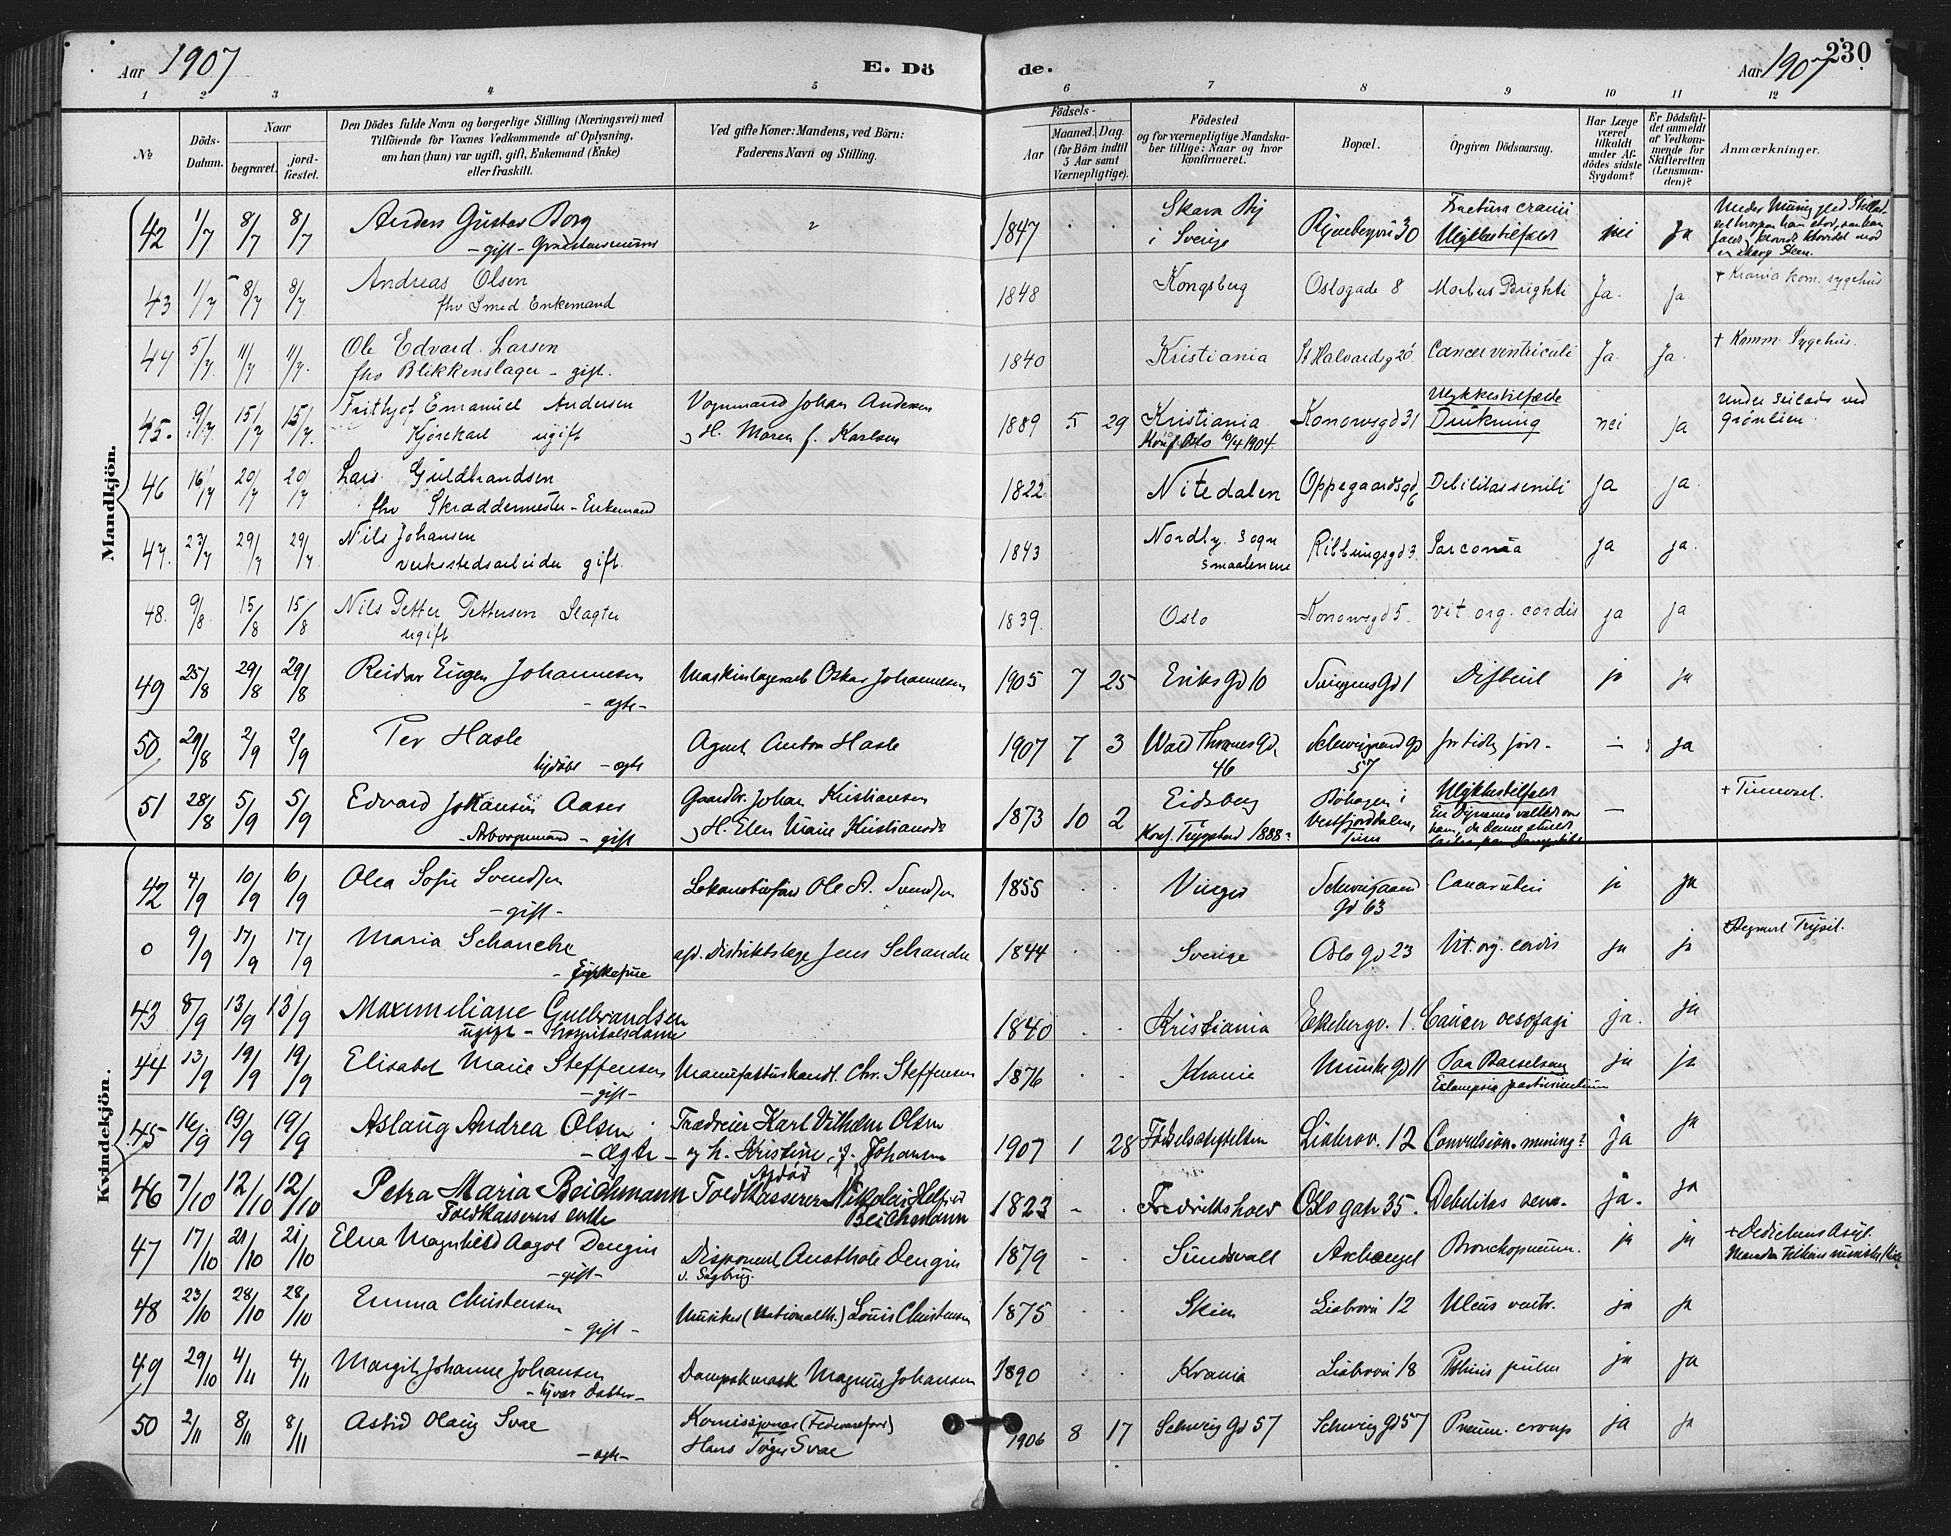 Aar 1907
E. Dö
de.
Aar 1907
230
1 2 3 4 5 6 7 8 9 10 11 12
№
Döds-Datum.
Naar
begravet.
jord-fæstet.
Den Dödes fulde Navn og borgerlige Stilling (Næringsvei) med
Tilföiende for Voxnes Vedkommende af Oplysning,
om han (hun) var ugift, gift, Enkemand (Enke)
eller fraskilt.
Ved gifte Koner: Mandens, ved Börn:
Faderens Navn og Stilling.
Födsels-
Aar
Maaned. Dag.
(for Börn indtil
5 Aar samt
Værnepligtige).
Födested
og for værnepligtige Mandska-
ber tillige: Naar og hvor
konfirmeret.
Bopæl.
Opgiven Dödsaarsag.
Har Læge
været
tilkaldt
under Af-
dödes sidste
Sygdom?
Er Dödsfal-
det anmeldt
af Vedkom-
mende for
Skifteretten
(Lensman-
den)?
Anmærkninger.
Mandkjön.
42 1/7 8/7 8/7 Gustav Borg 1847 Skara By Fractura cranii
- gift - i Sverige 30 Ulykkestilfælde nei ja
43 1/7 8/7 8/7 Andreas Olsen 1848 Kongsberg Oslogade 8 Morbus Brighti Ja. ja + Krania kom. sygehus
fhv Smed. Enkemand
44 5/7 11/7 11/7 Ole Edvard Larsen 1840 Kristiania St Halvardsg 20 Cancer ventriculi Ja. Ja. + Komm. Sygehus.
fhv Blikkenslager - gift.
45. 9/7 15/7 15/7 Frithjof Emanuel Andersen Vognmand Johan Andersen 1889 5 29 Kristiania Konowsgd 31 Ulykkestilfælde nei ja under seilads ved
Kjørekarl ugift H. Maren f. Karlsen Konf. Oslo 10/4 1904. Drukning Grønlien
46 16/7 20/7 20/7 Lars Guldbrandsen 1822 Nitedalen Oppegaardsgd 6 Debilitas senili ja ja.
fhv Skræddermester - Enkemand
47. 23/7 29/7 29/7 Nils Johansen 1843 Nordby Sogn Ribbungsgd 3. Sarcoma ja ja.
verkstedsarbeider gift. Smaalenene
48. 9/8 15/8 15/8 Nils Petter Pettersen Slagter 1839. Oslo Konowsgd 5. vit. org. cordis ja ja
ugift
49 25/8 29/8 29/8 Reidar Eugen Johannesen Oskar Johannesen 1905 7 25 Eriks Gd 10 Gd 1 ja
- ægte -
50 29/8 2/9 2/9 Per Hasle Agent Anton Hasle 1907 7 3 Wald Thranes Gd, Schweigaard Gd for tidlig født - - ja
hjdøbt - ægte 46 57
51 28/8 5/9 5/9 Edvard Johansen Aaser Gaardbr. Johan Kristiansen 1873 10 2 Eidsberg i Ulykkestilfælde -
- gift H. Elen Marie Konf. Trygstad 1888 Vestfjorddalen, Tinn
Kvindekjön.
42 4/9 10/9 10/9 Olea Sofie Svendsen Ole A. Svendsen 1855 Vinger Schweigaard Gd 63 Cancer uteri ja ja
- gift -
0 9/9 17/9 17/9 Maria Schancke afd. Distriktslæge Jens Schancke 1844 Sverige Oslo Gd 23 Vit. org. cordis ja ja Trysil.
43 8/9 13/9 13/9 Maximiliane Gulbrandsen 1840 Kristiania Ekebergv. 1. Cancer oesofagi ja. ja
ugift - hospitalsdame
44 13/9 19/9 19/9 Elisabet Marie Steffensen Manufakturhandl. Chr. Steffensen 1876 Krania Munke Gd 11 Paa Barselseng ja ja
- gift - Eclampsia
45 16/9 19/9 19/9 Aslaug Andrea Olsen Trædreier Karl Vilhelm Olsen 1907 1 28 Fødselsstiftelsen Liabrov. 12 ja ja
- Ægte - og h. Kristine, f. Johansen
46 7/10 12/10 12/10 Petra Maria Beichmann Afdød Toldkasserer Nikolai 1823 Oslo gate 35. Debilitas sen. ja. ja
Toldkasserers enke Beichmann
47 17/10 21/10 21/10 Elna Magnhild Aagot Dengin Disponent Anathole Dengin 1879 Sundsvall Archangel Bronchopneum. ja ja + Dedichens Asyl.
- gift - v. Sagbrug.
48 23/10 28/10 28/10 Emma Christensen Musiker (Nationalth.) Louis Christensen 1875 Skien Liabrovn 12 Ulcus ventr. ja ja
- gift -
49 29/10 4/11 4/11 Margit Johanne Johansen Magnus Johansen 1890 Krania Liabrovn 18 Phtisis pulm ja ja
- hjvær. datter -
50 2/11 8/11 8/11 Astrid Olaug Svae Komissionær 1906 8 17 Schweig Gd 57 Schweig Gd 57 Pneum. croup ja ja
- ægte - Hans Svae